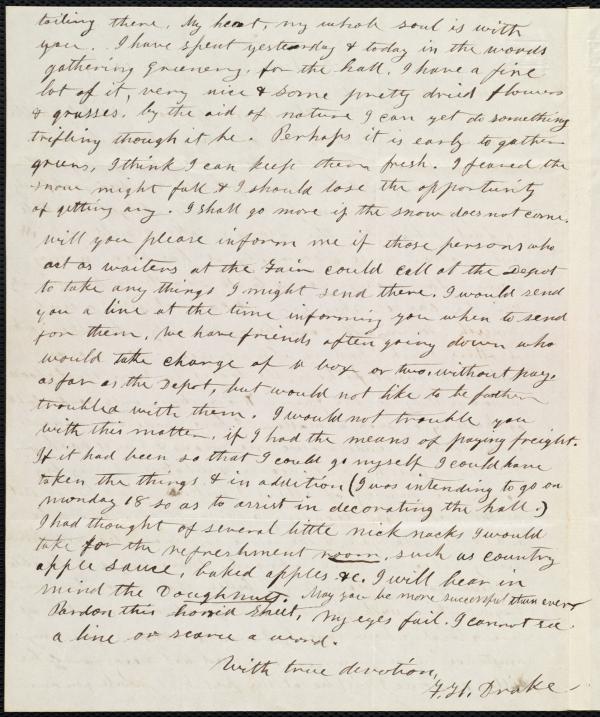 toiling there. My heart, my whole soul is with
you. I have spent yesterday & today in the woods
gathering Greenery, for the hall. I have a fine
lot of it, very nice & some pretty dried flowers
& grasses. by the aid of nature I can yet do something
trifling though it be. Perhaps it is early to gather
greens, I think I can keep them fresh. I feared the
snow might fall & I should lose the opportunity
of getting any. I shall go more if the snow does not come.
Will you please inform me if those persons who
act as waiters at the Fair could call at the Depot
to take any things I might send there. I would send
you a line at the time informing you when to send
for them. We have friends often going down who
would take charge of a box or two, without pay,
as far as the Depot, but would not like to be further
troubled with them. I would not trouble you
with this matter, if I had the means of paying freight.
If it had been so that I could go myself I could have
taken the things & in addition (I was intending to go on
monday 18 so as to assist in decorating the hall.)
I had thought of several little nick nacks I would
take for the refreshment room, such as country
apple sauce, baked apples &c. I will bear in
mind the Doughnuts. May you be more successful than ever
Pardon this horrid sheet, my eyes fail. I cannot see
a line or scarce a word.
With true devotion,
F. H. Drake